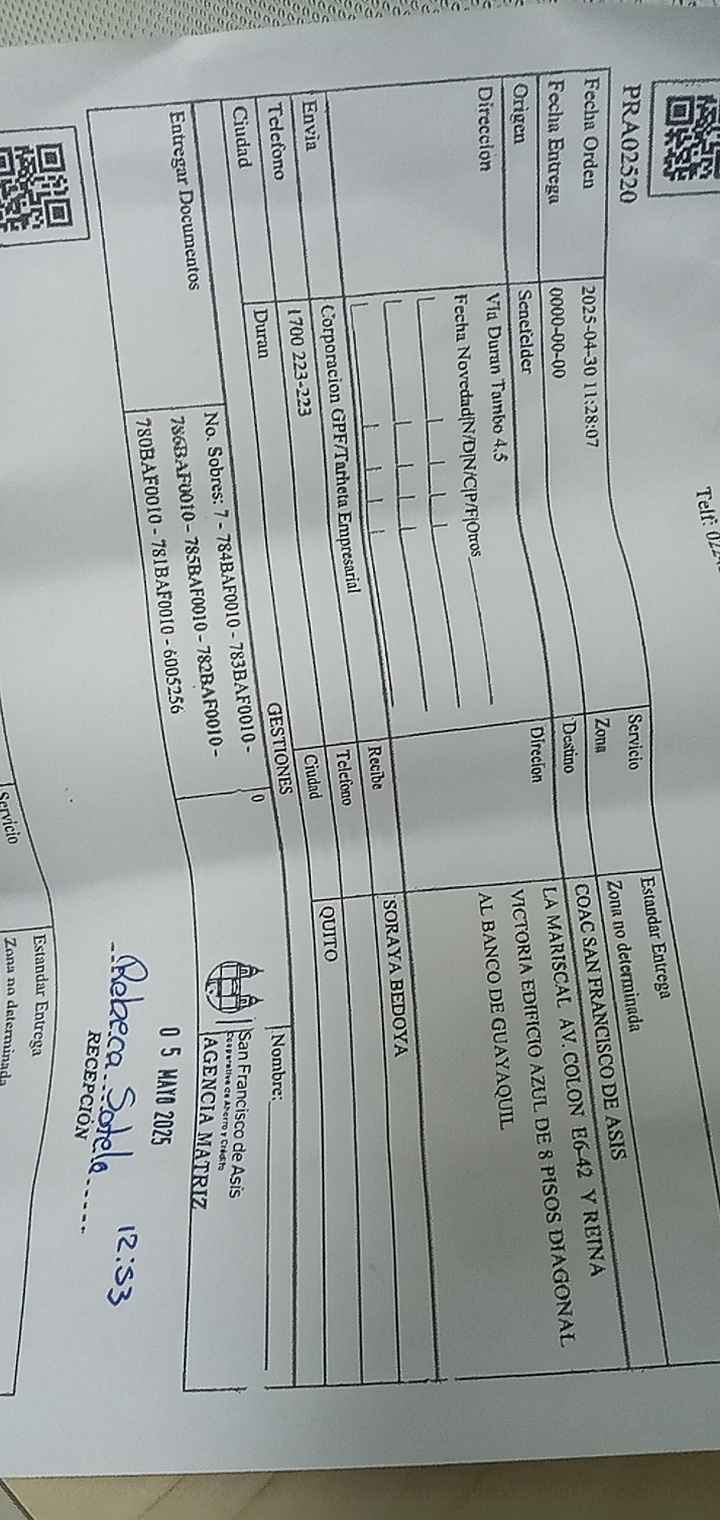 Telf: 022
PRA02520
Servicio Estandar Entrega
Fecha Orden 2025-04-30 11:28:07 Zona Zona no determinada
Fecha Entrega 0000-00-00 Destino COAC SAN FRANCISCO DE ASIS
Origen Senefelder Direcion LA MARISCAL AV. COLON E6-42 Y REINA
VICTORIA EDIFICIO AZUL DE 8 PISOS DIAGONAL
AL BANCO DE GUAYAQUIL
Direccion Via Duran Tambo 4.5
Fecha Novedad|N/D|N/C|P/F|Otros
Recibe SORAYA BEDOYA
Envia Corporacion GPF/Tarjeta Empresarial Telefono
Telefono 1700 223-223 Ciudad QUITO
Ciudad Duran
GESTIONES
Entregar Documentos
No. Sobres: 7 - 784BAF0010 - 783BAF0010 -
786BAF0010 - 785BAF0010 - 782BAF0010 -
780BAF0010 - 781BAF0010 - 6005256
0
Nombre:
San Francisco de Asis
Cooperativa de Ahorro y Crédito
AGENCIA MATRIZ
05 MAYO 2025
Rebeca Sotela 12:53
RECEPCIÓN
Servicio Estandar Entrega
Zona no determinada